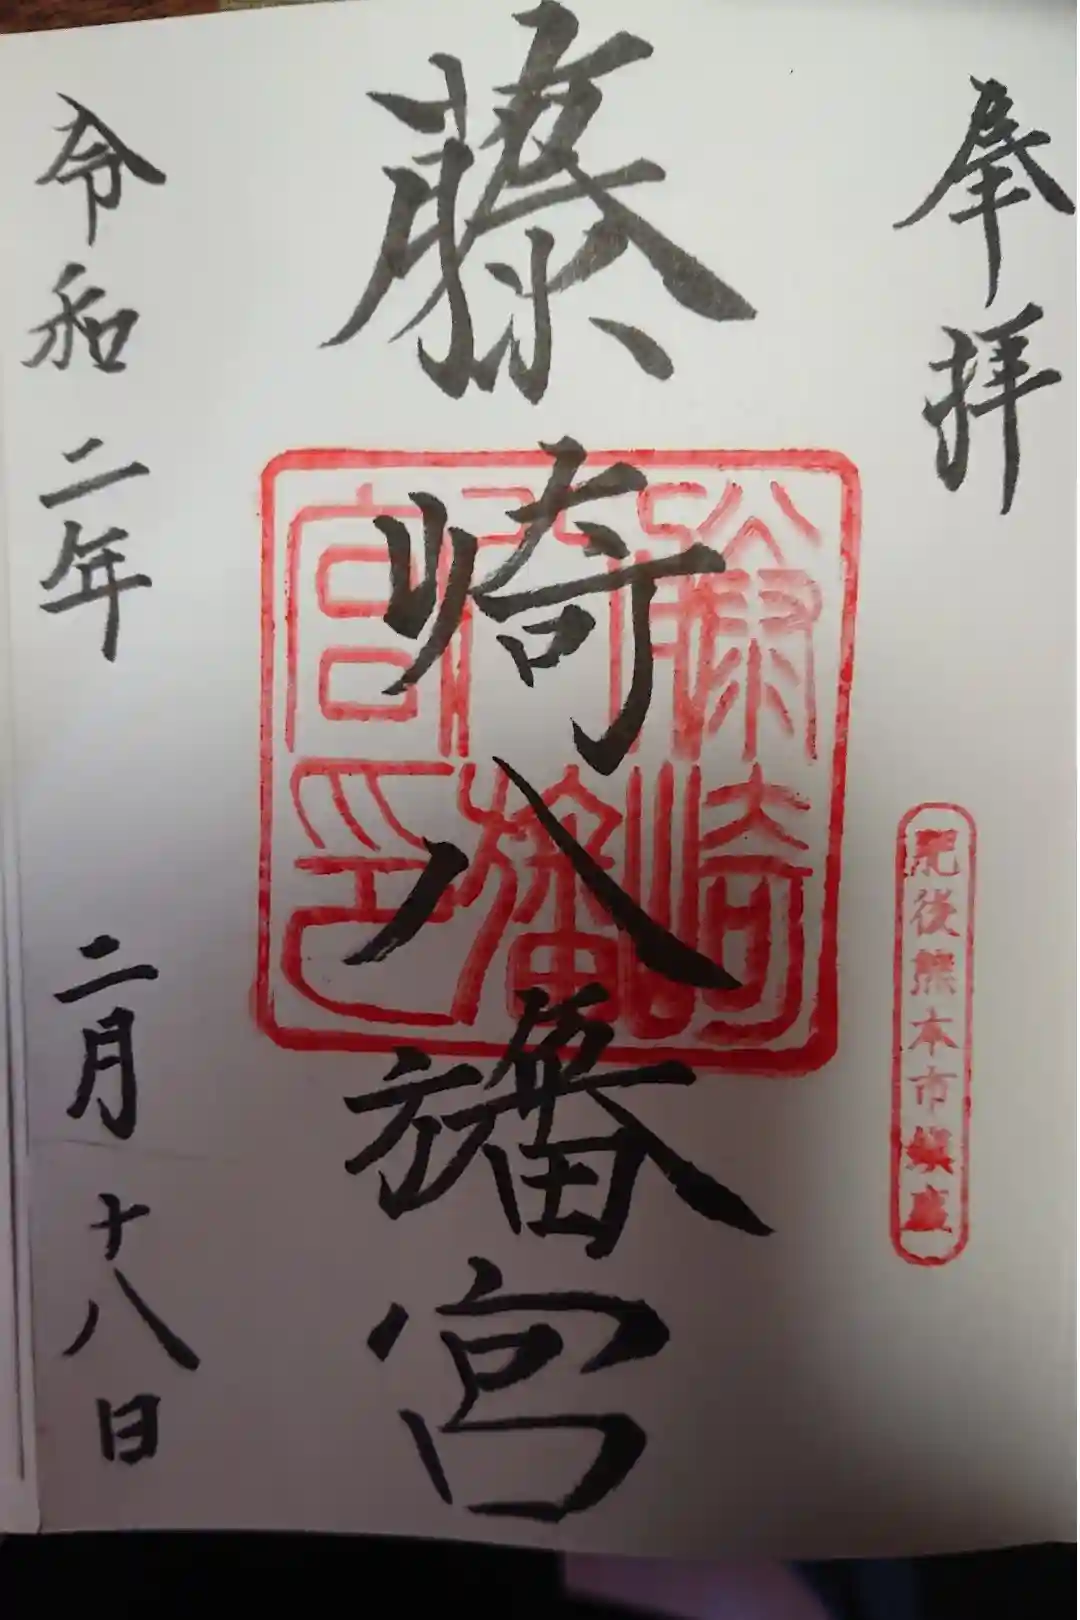 奉拝
肥後熊本市鎮座
藤崎八旛宮
藤崎
八旛
宮印
令和二年二月十八日